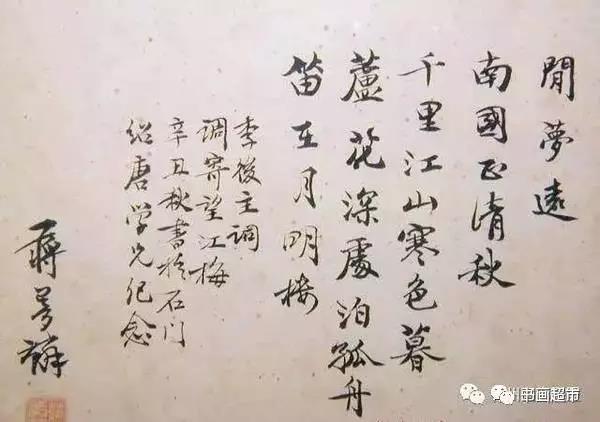 閒夢遠
南國正清秋
千里江山寒色暮
蘆花深處泊孤舟
笛在月明樓
李後主調
调寄望江梅
辛丑秋書於石门
绍唐学兄纪念